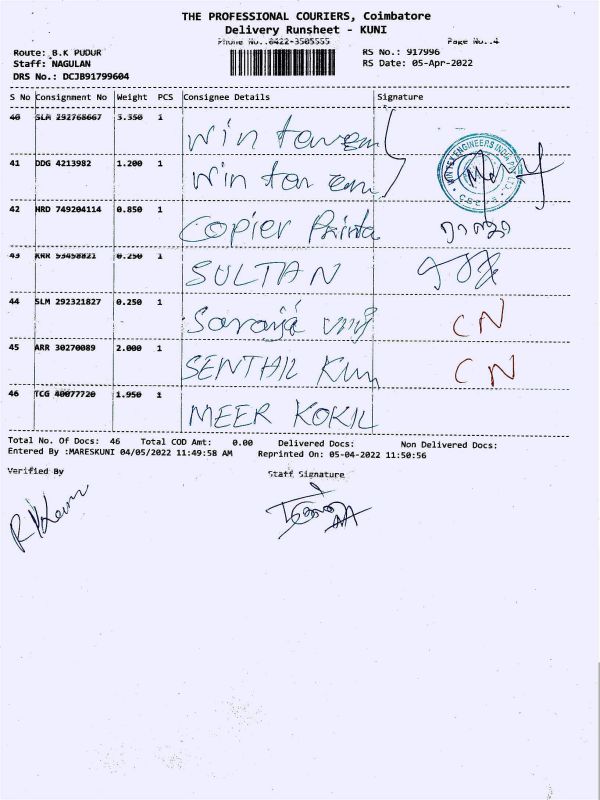 THE PROFESSIONAL COURIERS, Coimbatore
Delivery Runsheet - KUNI
Phone No..0422-3505555
Page No..4
Route: B.K PUDUR
RS No.: 917996
Staff: NAGULAN
RS Date: 05-Apr-2022
DRS No.: DCJB91799604
S No Consignment No Weight PCS Consignee Details Signature
40 SLM 292768667 3.350 1 Win
41 DDG 4213982 1.200 1 Win
42 HRD 749204114 0.850 1 Copier
43 KRR 53458821 0.250 1 SULTAN
44 SLM 292321827 0.250 1 CN
45 ARR 30270089 2.000 1 SENTHIL CN
46 TCG 40077720 1.950 1 MEER KOKIL
Total No. Of Docs: 46 Total COD Amt: 0.00 Delivered Docs: Non Delivered Docs:
Entered By :MARESKUNI 04/05/2022 11:49:58 AM Reprinted On: 05-04-2022 11:50:56
Verified By Staff Signature